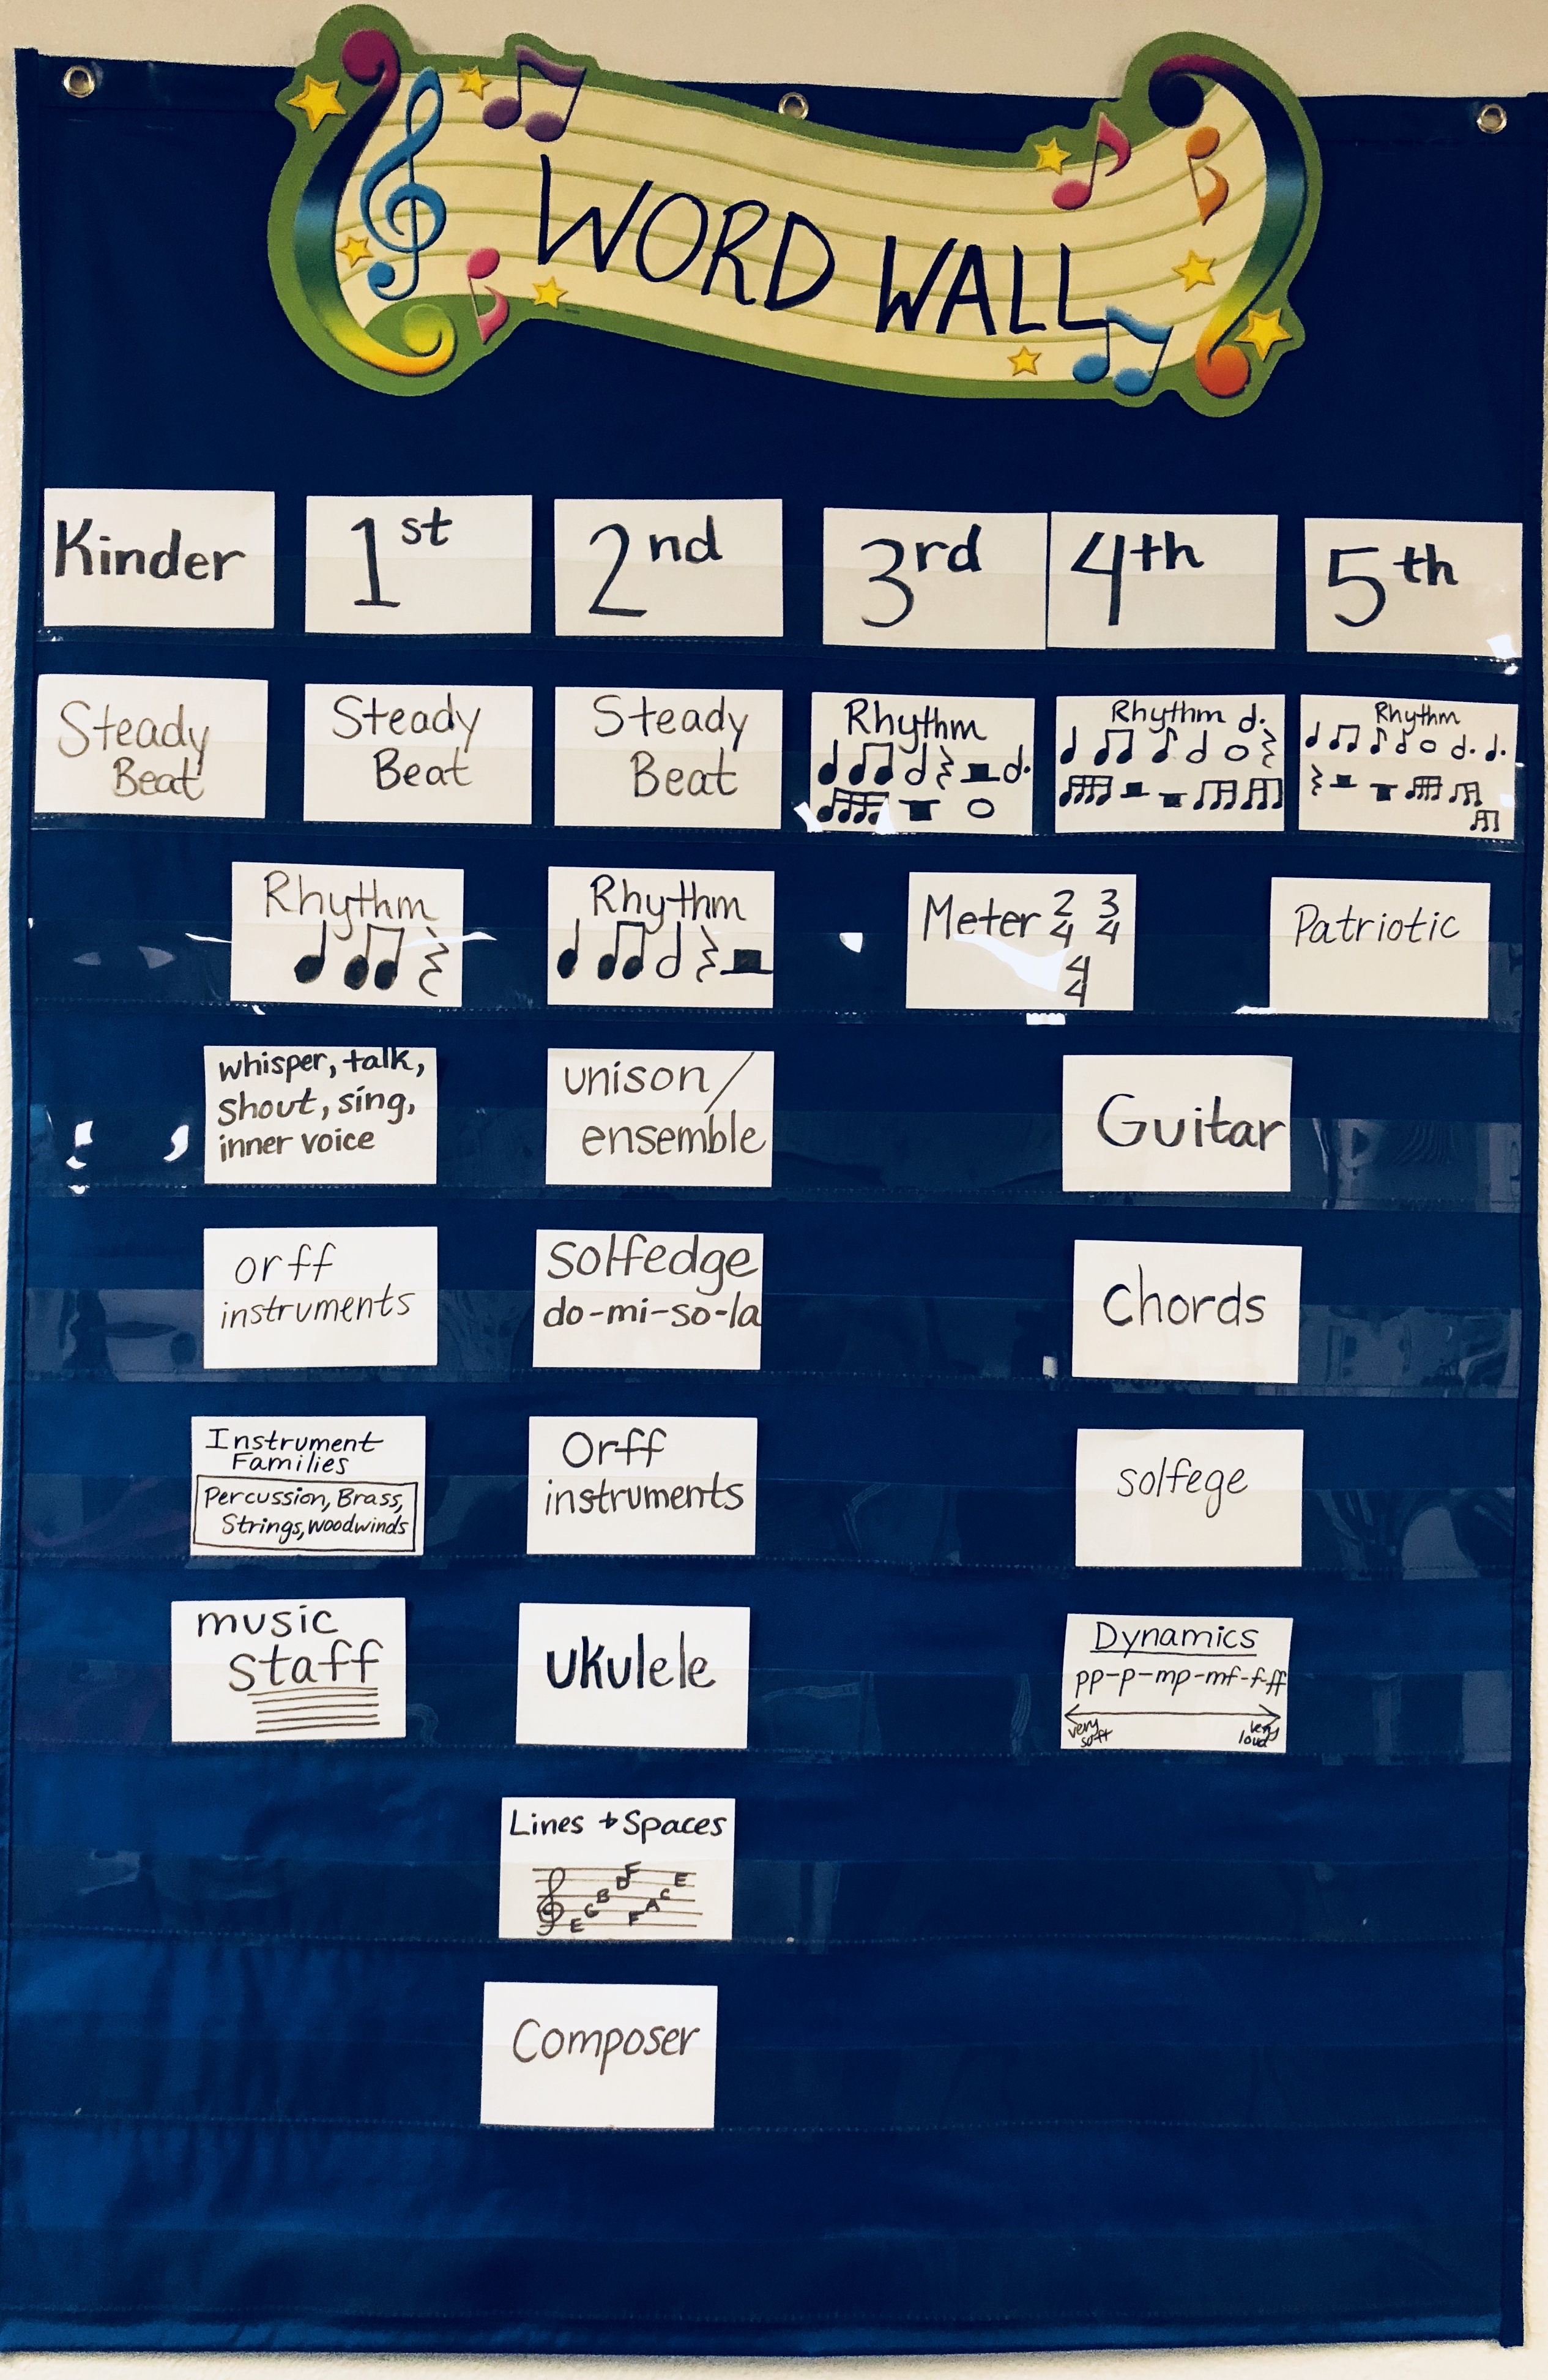 WORD WALL
Kinder
1st
2nd
3rd
4th
5th
Steady
Beat
Steady
Beat
Steady
Beat
Rhythm
Rhythm
Rhythm
Rhythm
Rhythm
Meter 2/4 3/4
4/4
Patriotic
whisper, talk,
shout, sing,
inner voice
unison/
ensemble
Guitar
orff
instruments
solfedge
do-mi-so-la
Chords
Instrument
Families
Percussion, Brass,
Strings, woodwinds
Orff
instruments
solfege
music
staff
ukulele
Dynamics
pp-p-mp-mf-f-ff
very
soft
very
loud
Lines + Spaces
E G B D F
F A C E
Composer